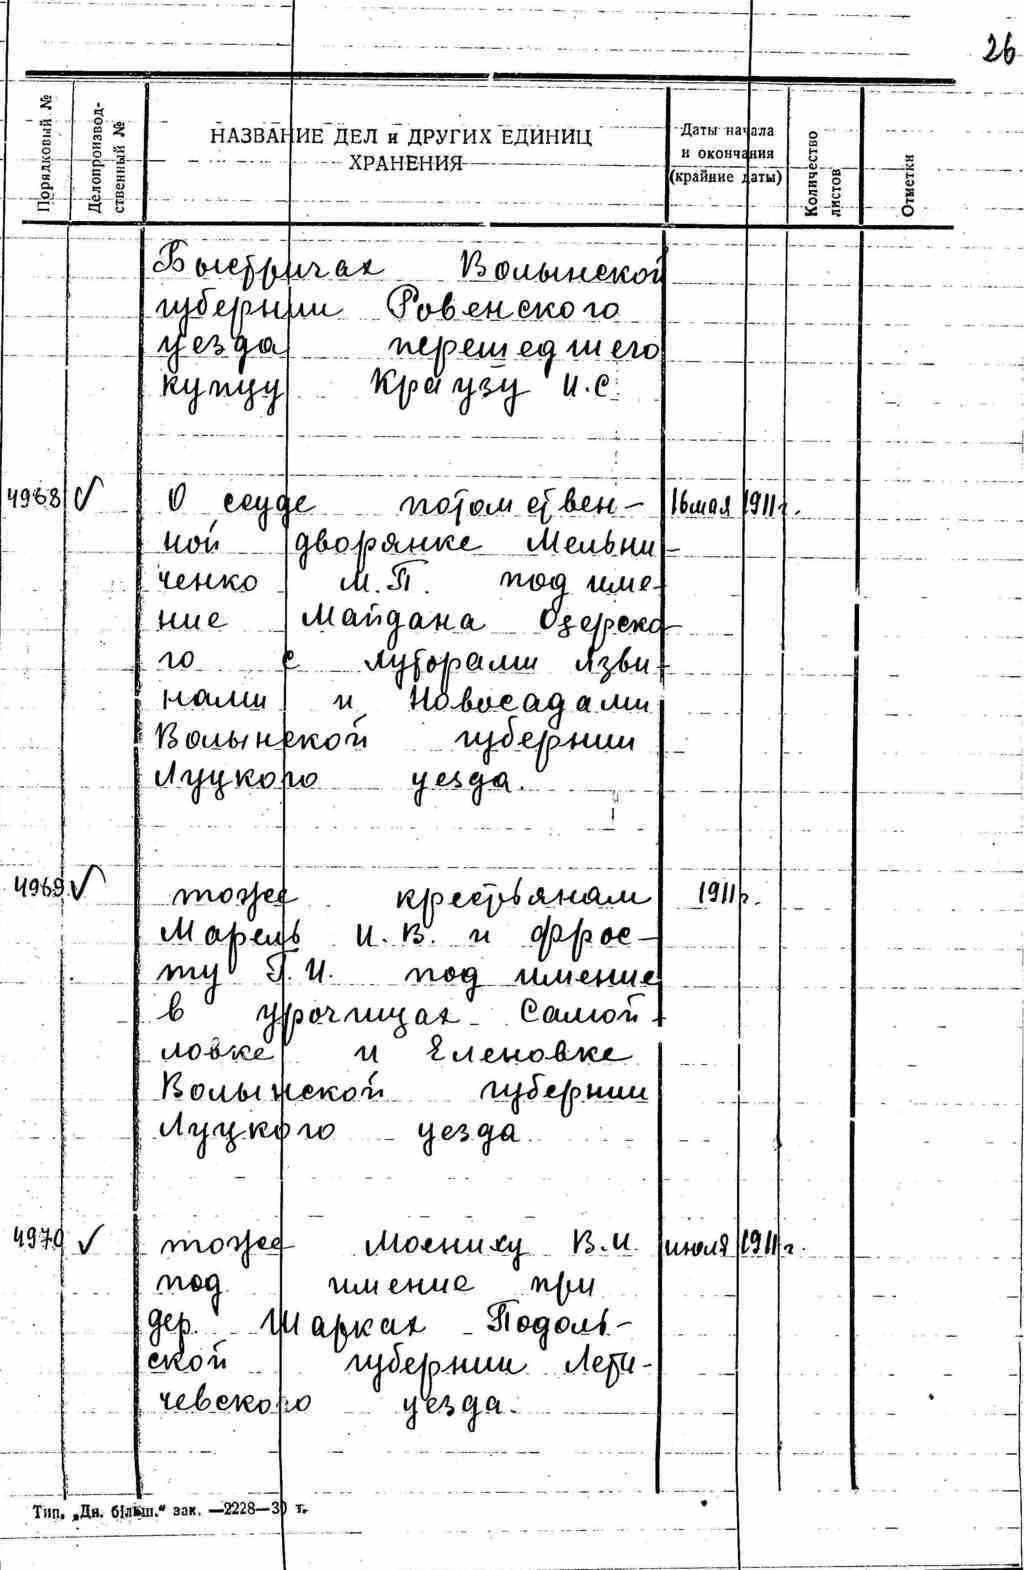 26
Порядковый №
Делопроизвод-
ственный №
НАЗВАНИЕ ДЕЛ и ДРУГИХ ЕДИНИЦ
ХРАНЕНИЯ
Даты начала
и окончания
(крайние даты)
Количество
листов
Отметки
Быстричах Волынской
губернии Ровенского
уезда перешедшего
купцу Краузу И.С.
4968 О ссуде потомствен- 16 мая 1911 г.
ной дворянке Мельни
ченко М.П. под име-
ние Майдана Озерско
го с хуторами Язви
нами и Новосадами
Волынской губернии
Луцкого уезда.
4969 тоже крестьянам 1911 г.
Марель И.В. и Фрос-
ту Г.И. под имение
в урочищах Самой
ловке и Еленовке
Волынской губернии
Луцкого уезда
4970 тоже В.И. июля 1911 г.
под имение при
дер. Шарках Подоль-
ской губернии Лети-
чевского уезда.
Тип. „Дн. більш." зак. —2228—30 т.